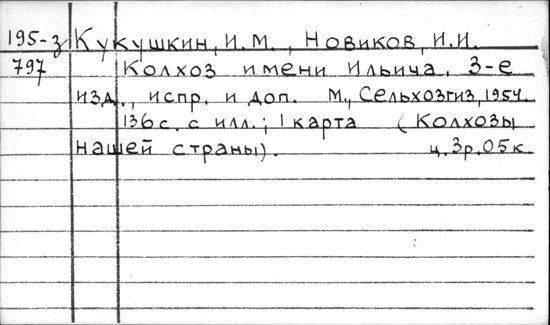 195-3 Кукушкин, И.М., Новиков, И.И.
797 Колхоз имени Ильича. 3-е
изд., испр. и доп. М., Сельхозгиз, 1954.
136 с. с илл.; 1 карта (Колхозы
нашей страны). ц. 3р. 05к.